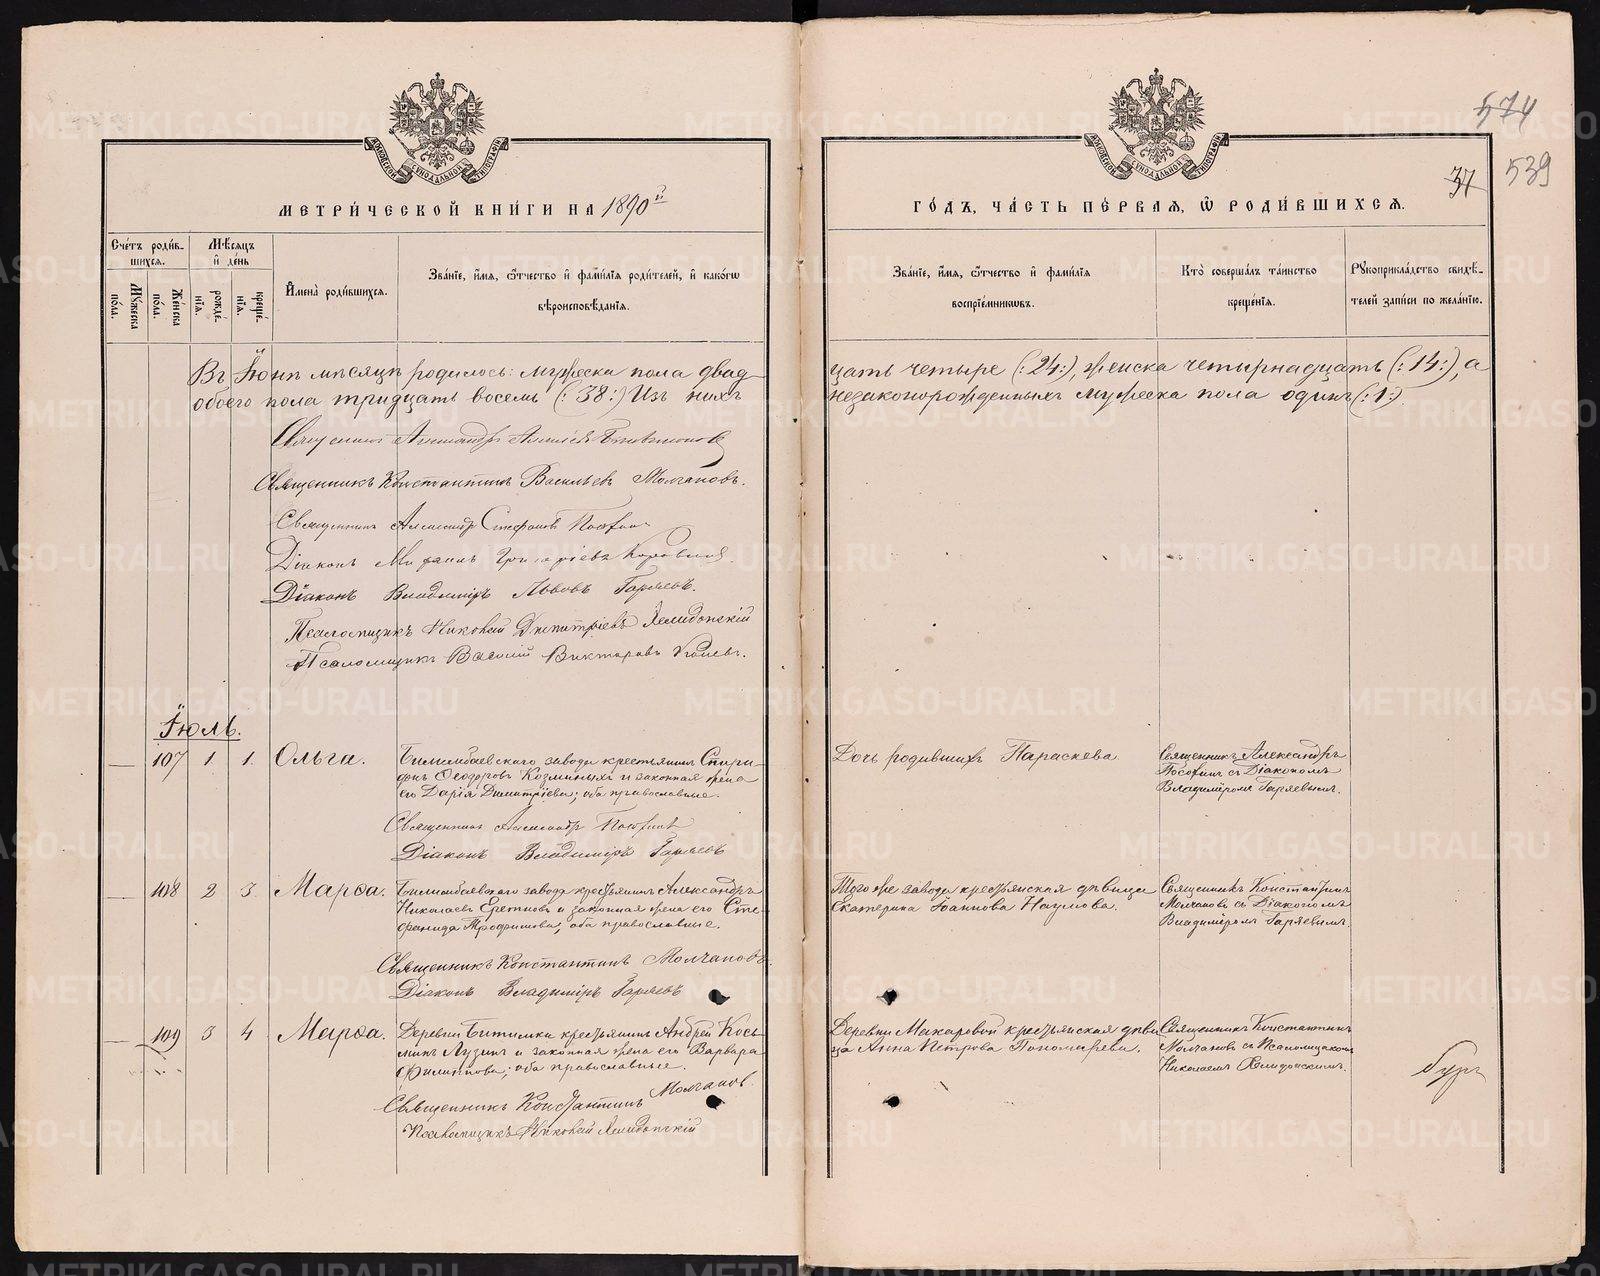 574
539
37
МОСКОВСКОЙ СѴНОДАЛЬНОЙ ТИПОГРАФІИ
МЕТРИ́ЧЕСКОЙ КНИ́ГИ НА 1890й
Сче́тъ роди́в-
шихся.
Мѣ́сяцъ
и҆ де́нь
Мꙋ́жеска по́ла.
Же́нска по́ла.
рожде́-
нїѧ.
креще́-
нїѧ.
И҆мена̀ роди́вшихсѧ.
Зва́нїе, и҆́мѧ, ѻ҆́тчество и҆ фами́лїѧ роди́телей, и҆ како́гѡ
вѣроисповѣ́данїѧ.
Въ Іюнѣ мѣсяцѣ родилось: мужеска пола двад-
обоего пола тридцать восемь (:38:) Изъ нихъ
Священникъ Александръ Алексіевъ
Священникъ Константинъ Васильевъ Молчановъ.
Священникъ Александръ Стефановъ
Діаконъ Михаилъ Григоріевъ
Діаконъ Владиміръ Львовъ Гаряевъ.
Псаломщикъ Николай Димитріевъ Хелидонскій
Псаломщикъ Василій Викторовъ
Іюль.
107 1 1. Ольга. Билимбаевскаго завода крестьянинъ Спири-
донъ Ѳеодоровъ Козминыхъ и законная жена
его Дарія Димитріева; оба православные.
Священникъ Александръ
Діаконъ Владиміръ Гаряевъ
108 2 3. Марѳа. Билимбаевскаго завода крестьянинъ Александръ
Николаевъ Еретновъ и законная жена его Сте-
фанида Трофимова; оба православные.
Священникъ Константинъ Молчановъ.
Діаконъ Владиміръ Гаряевъ
109 3 4 Марѳа. Деревни Битимки крестьянинъ Андрей Кось-
минъ Лузинъ и законная жена его Варвара
Филиппова; оба православные.
Священникъ Константинъ Молчановъ.
Псаломщикъ Николай Хелидонскій
МОСКОВСКОЙ СѴНОДАЛЬНОЙ ТИПОГРАФІИ
ГО́ДЪ, ЧА́СТЬ ПЕ́РВАѦ, Ѡ҆ РОДИ́ВШИХСѦ.
Зва́нїе, и҆́мѧ, ѻ҆́тчество и҆ фами́лїѧ
воспрїе́мниковъ.
Кто̀ соверша́лъ та́инство
креще́нїѧ.
Рꙋкоприкла́дство свидѣ́-
телей за́писи по жела́нїю.
цать четыре (:24:), женска четырнадцать (:14:), а
незаконорожденныхъ мужеска пола одинъ (:1:)
Дочь родившихъ Параскева.
Священникъ Александръ
съ Діакономъ
Владиміромъ Гаряевымъ.
Того же завода крестьянская дѣвица
Екатерина Іоаннова Наумова.
Священникъ Константинъ
Молчановъ съ Діакономъ
Владиміромъ Гаряевымъ.
Деревни Макаровой крестьянская дѣви-
ца Анна Петрова Пономарева.
Священникъ Константинъ
Молчановъ съ Псаломщикомъ
Николаемъ Хелидонскимъ.
METRIKI.GASO-URAL.RU